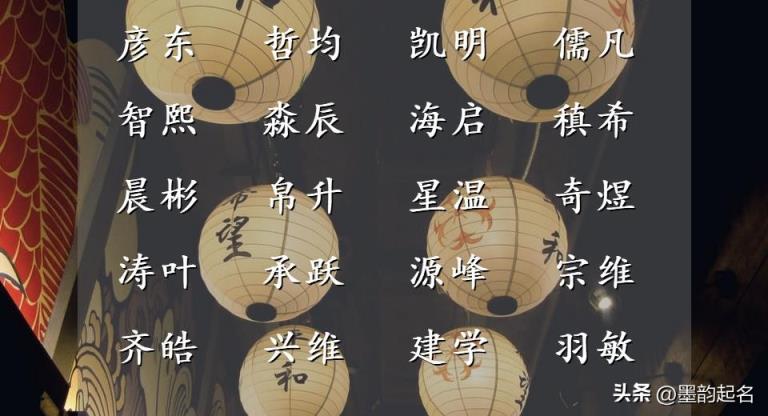 彦东 哲均 凯明 儒凡
智熙 淼辰 海启 稹希
晨彬 帛升 星温 奇煜
希望
和
涛叶 承跃 源峰 宗维
齐皓 兴维 建学 羽敏
和
头条 @墨韵起名